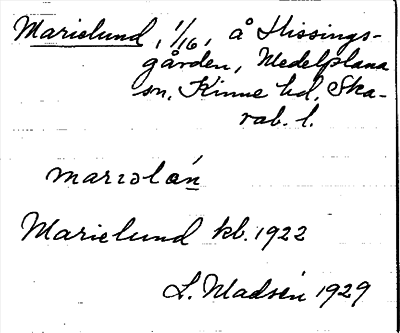 Marielund, 1/16, å Hissings-
gården, Medelplana
sn, Kinne hd, Ska-
rab. l.
marɩəlǝ́n
Marielund kb. 1922
L. Madsén 1929